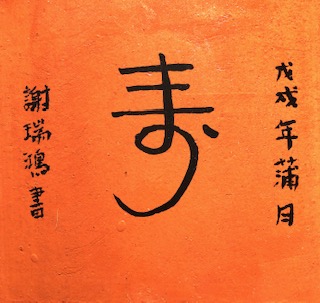 戊戌年蒲月
寿
謝瑞鴻書